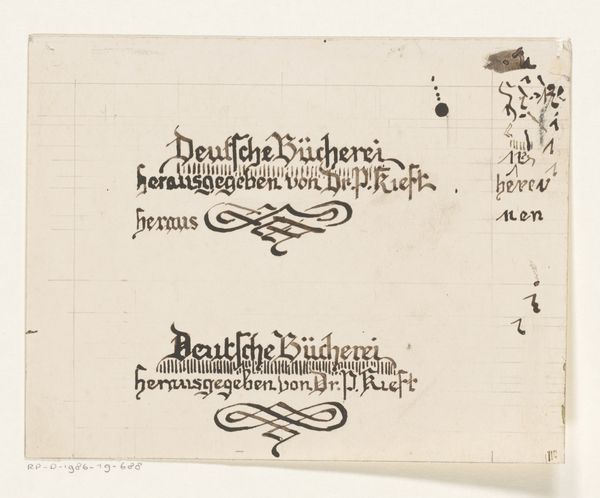 Deutsche Bücherei
herausgegeben von Dr. P. Kieft
heraus
herer
nen
Deutsche Bücherei
herausgegeben von Dr. P. Kieft
RP-D-1986-19-688